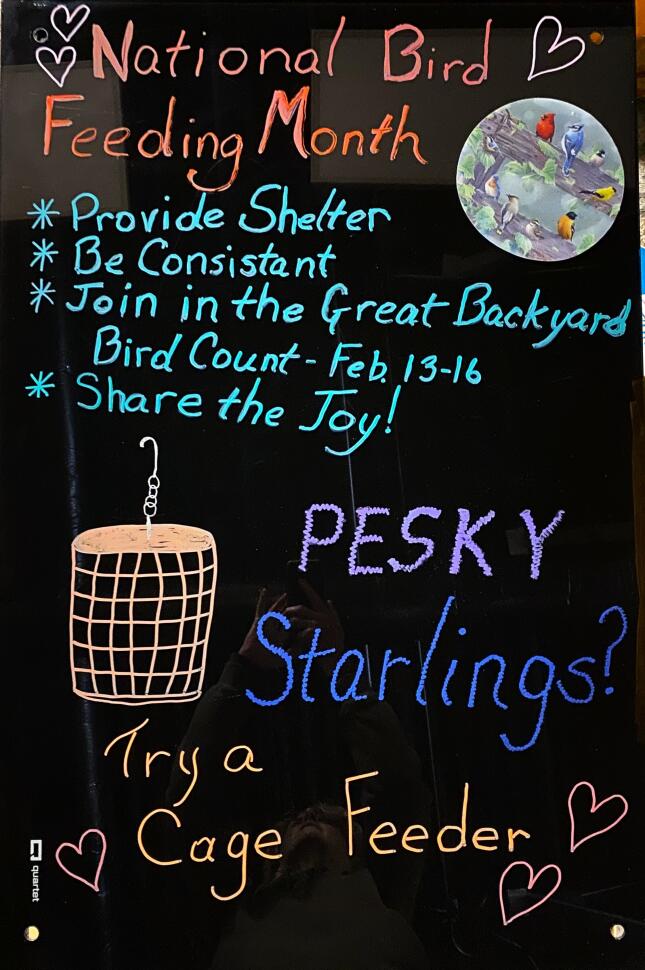 National Bird
Feeding Month
* Provide Shelter
* Be Consistant
* Join in the Great Backyard
Bird Count - Feb. 13-16
* Share the Joy!
PESKY
Starlings?
Try a
Cage Feeder
quartet